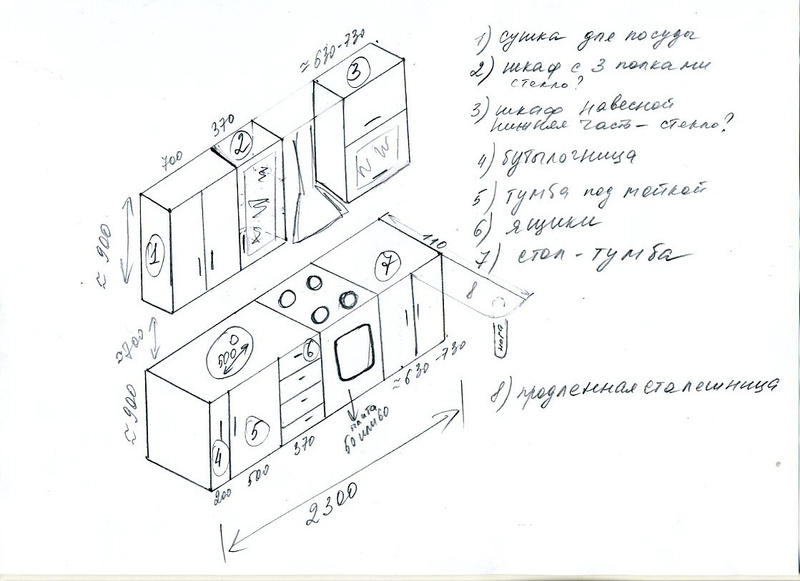 ≈630-730
370
700
≈900
≈700
≈900
1
2
3
7
8
110
500
6
5
4
200
500
370
плита
≈630-730
2300
1) сушка для посуды
2) шкаф с 3 полками
стекло?
3) шкаф навесной
нижняя часть - стекло?
4) бутылочница
5) тумба под мойкой
6) ящики
7) стол - тумба
8) продленная столешница